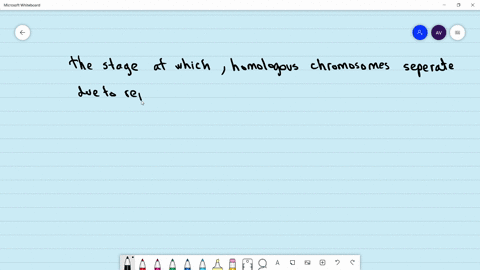 Microsoft Whiteboard
AV
the stage at which , homologous chromosomes seperate
due to rep